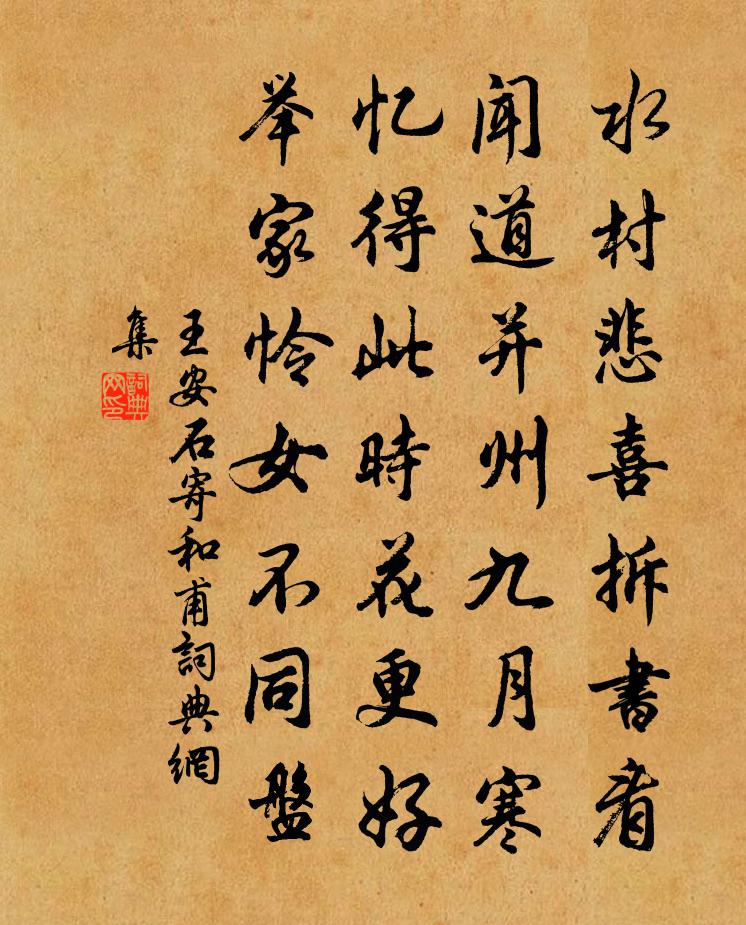 水村悲喜拆書看
聞道并州九月寒
忆得此時花更好
举家怜女不同盤
王安石寄和甫詞典網
集
詞典
网印